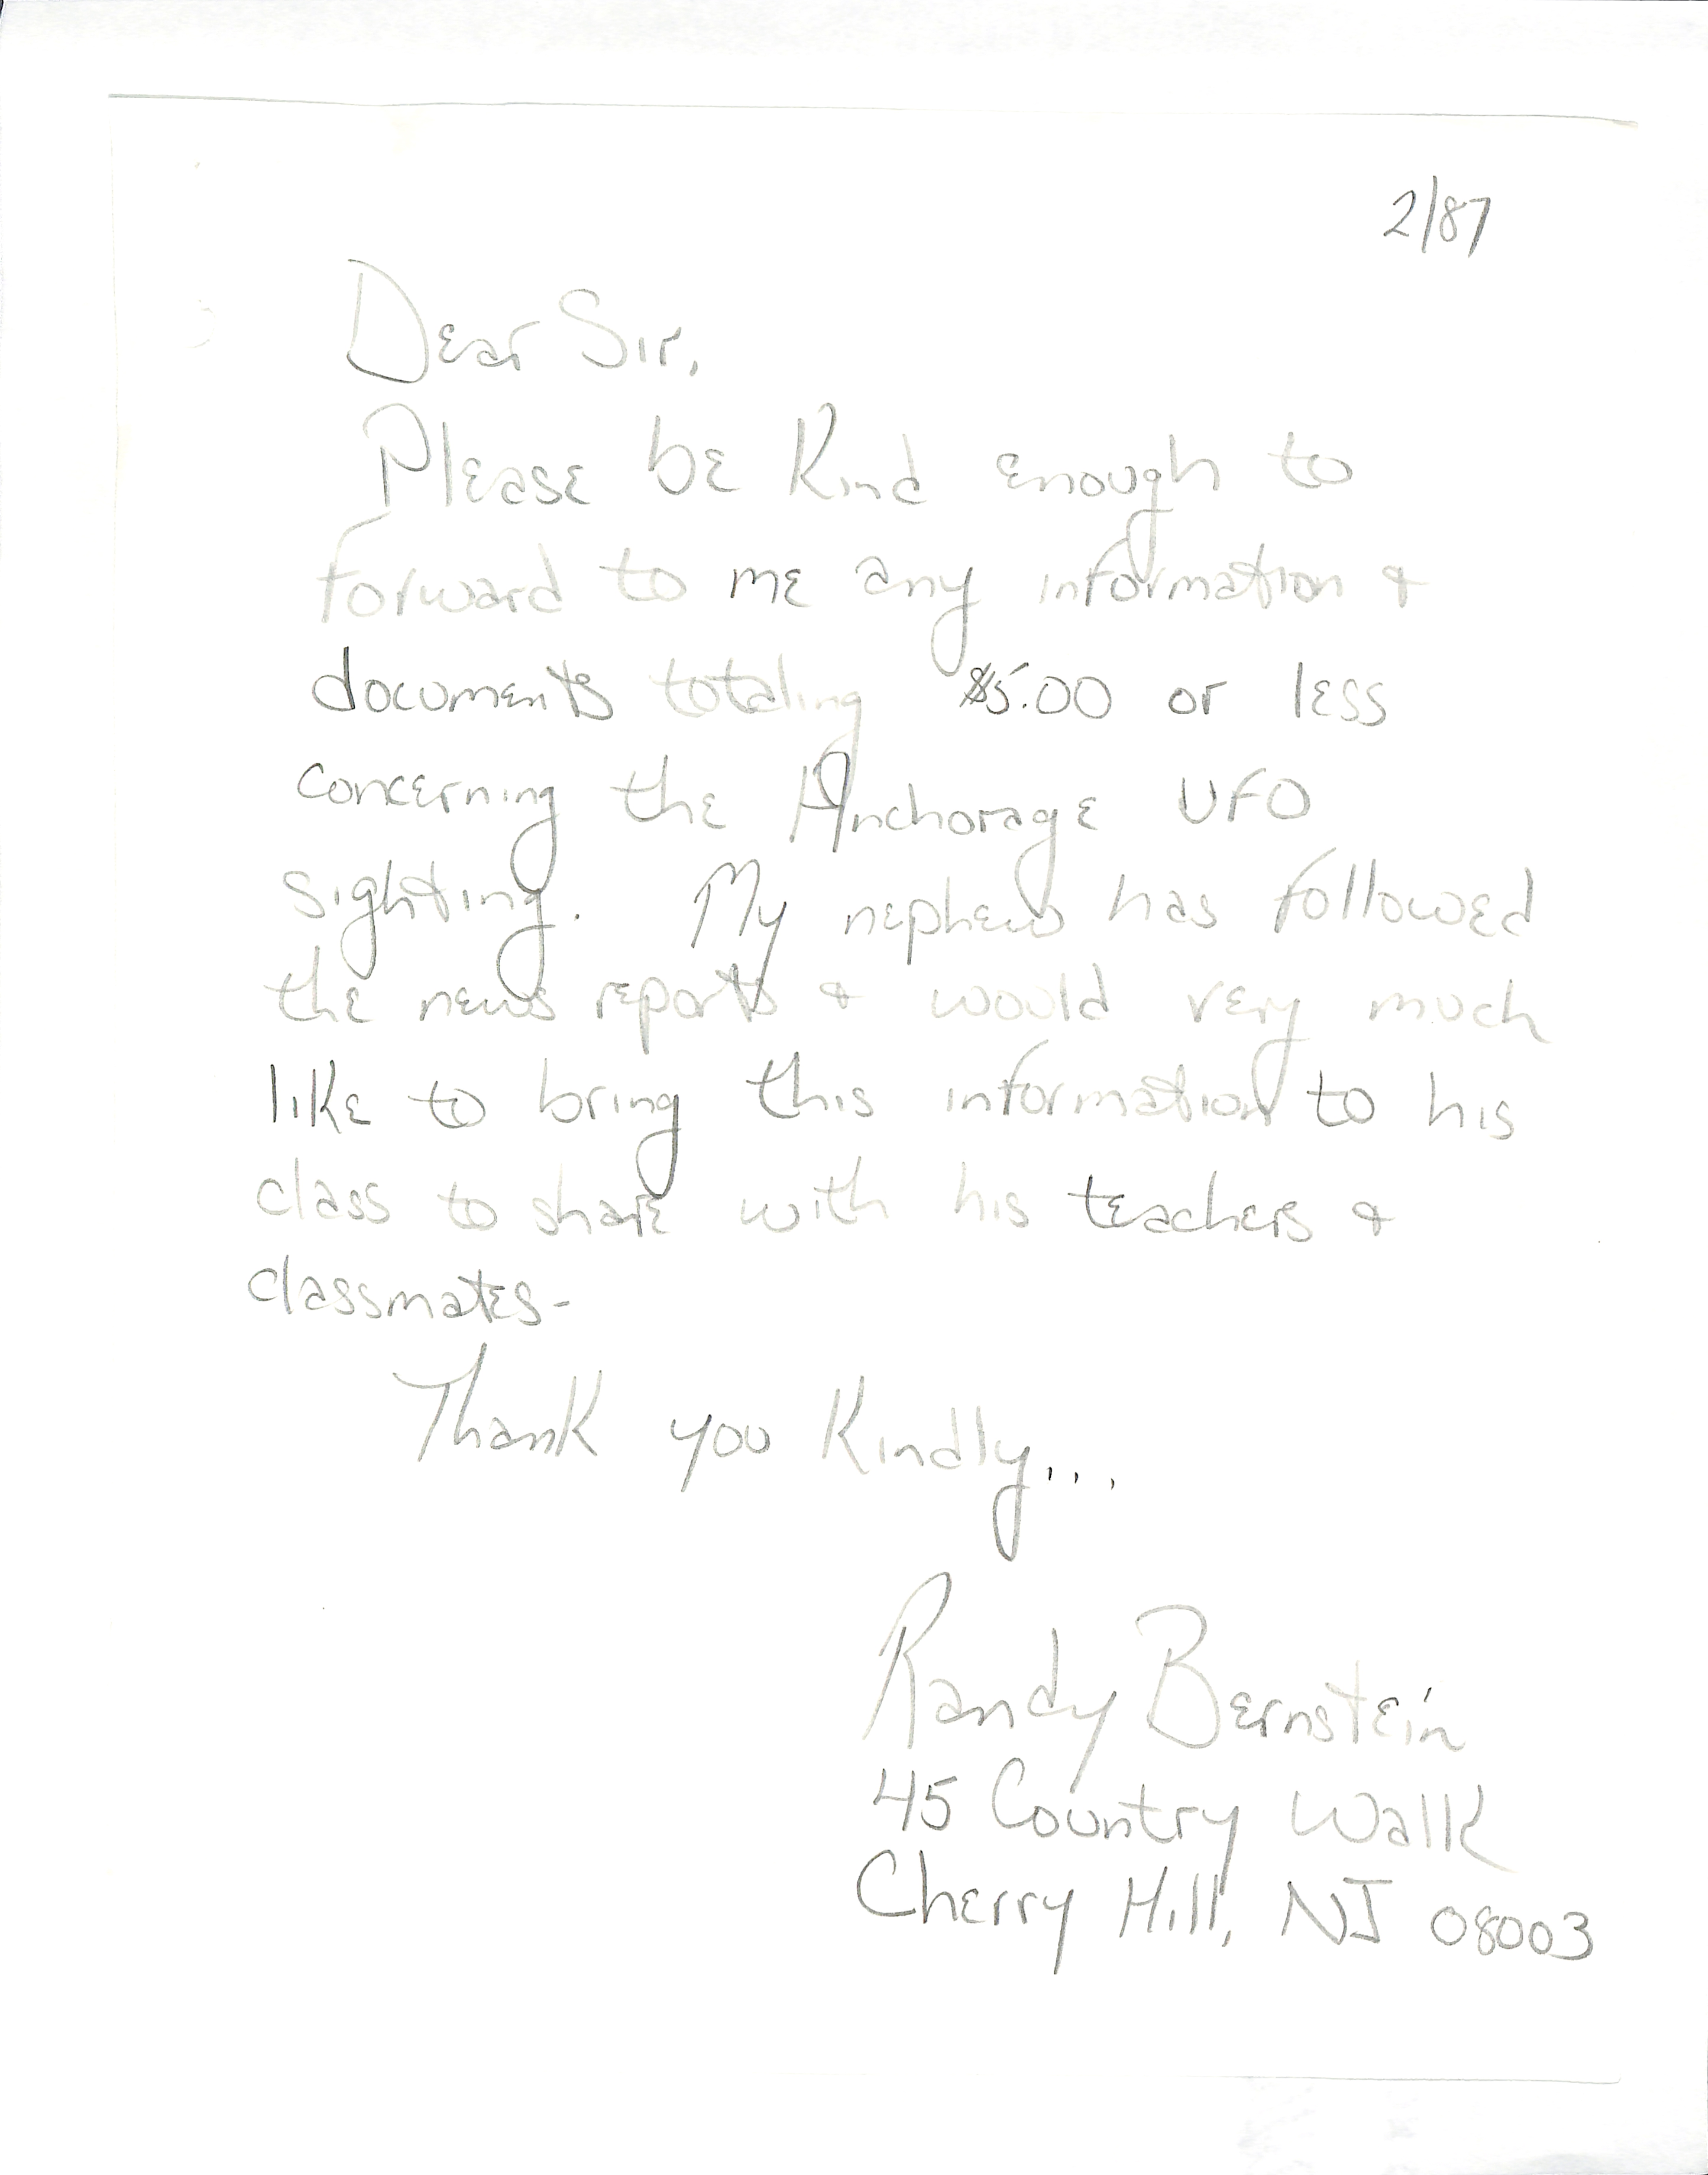 2/87
Dear Sir,
Please be Kind enough to
forward to me any information &
documents totaling $5.00 or less
concerning the Anchorage UFO
sighting. My nephew has followed
the news reports & would very much
like to bring this information to his
class to share with his teachers &
classmates-
Thank you Kindly...
Randy Bernstein
45 Country Walk
Cherry Hill, NJ 08003